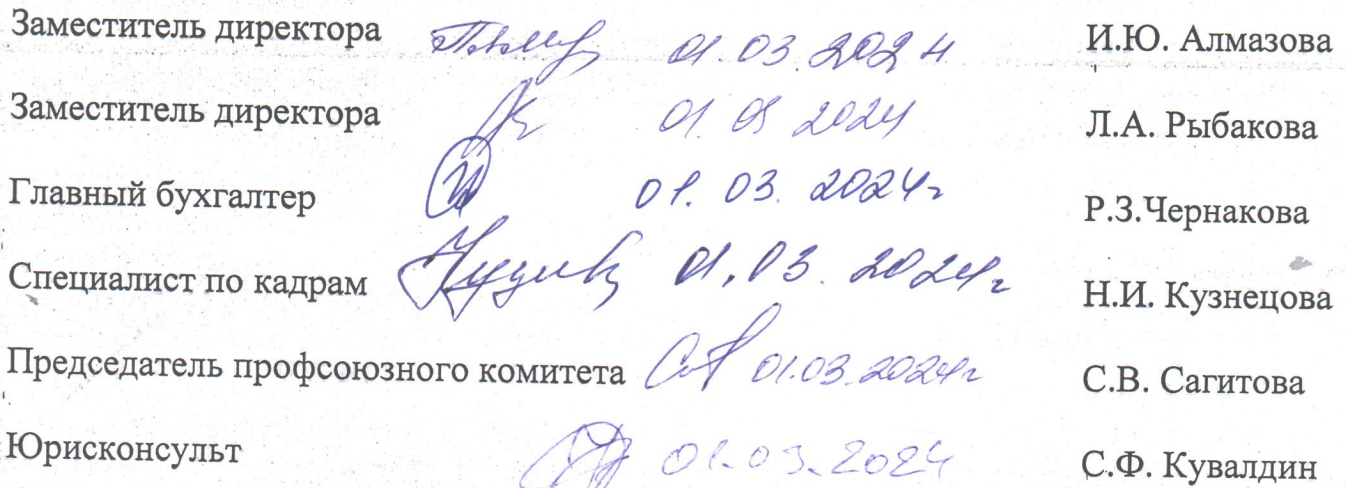 Заместитель директора 01.03.2024 И.Ю. Алмазова
Заместитель директора 01 03 2024 Л.А. Рыбакова
Главный бухгалтер 01.03.2024г Р.З.Чернакова
Специалист по кадрам 01.03.2024г Н.И. Кузнецова
Председатель профсоюзного комитета 01.03.2024г С.В. Сагитова
Юрисконсульт 01.03.2024 С.Ф. Кувалдин